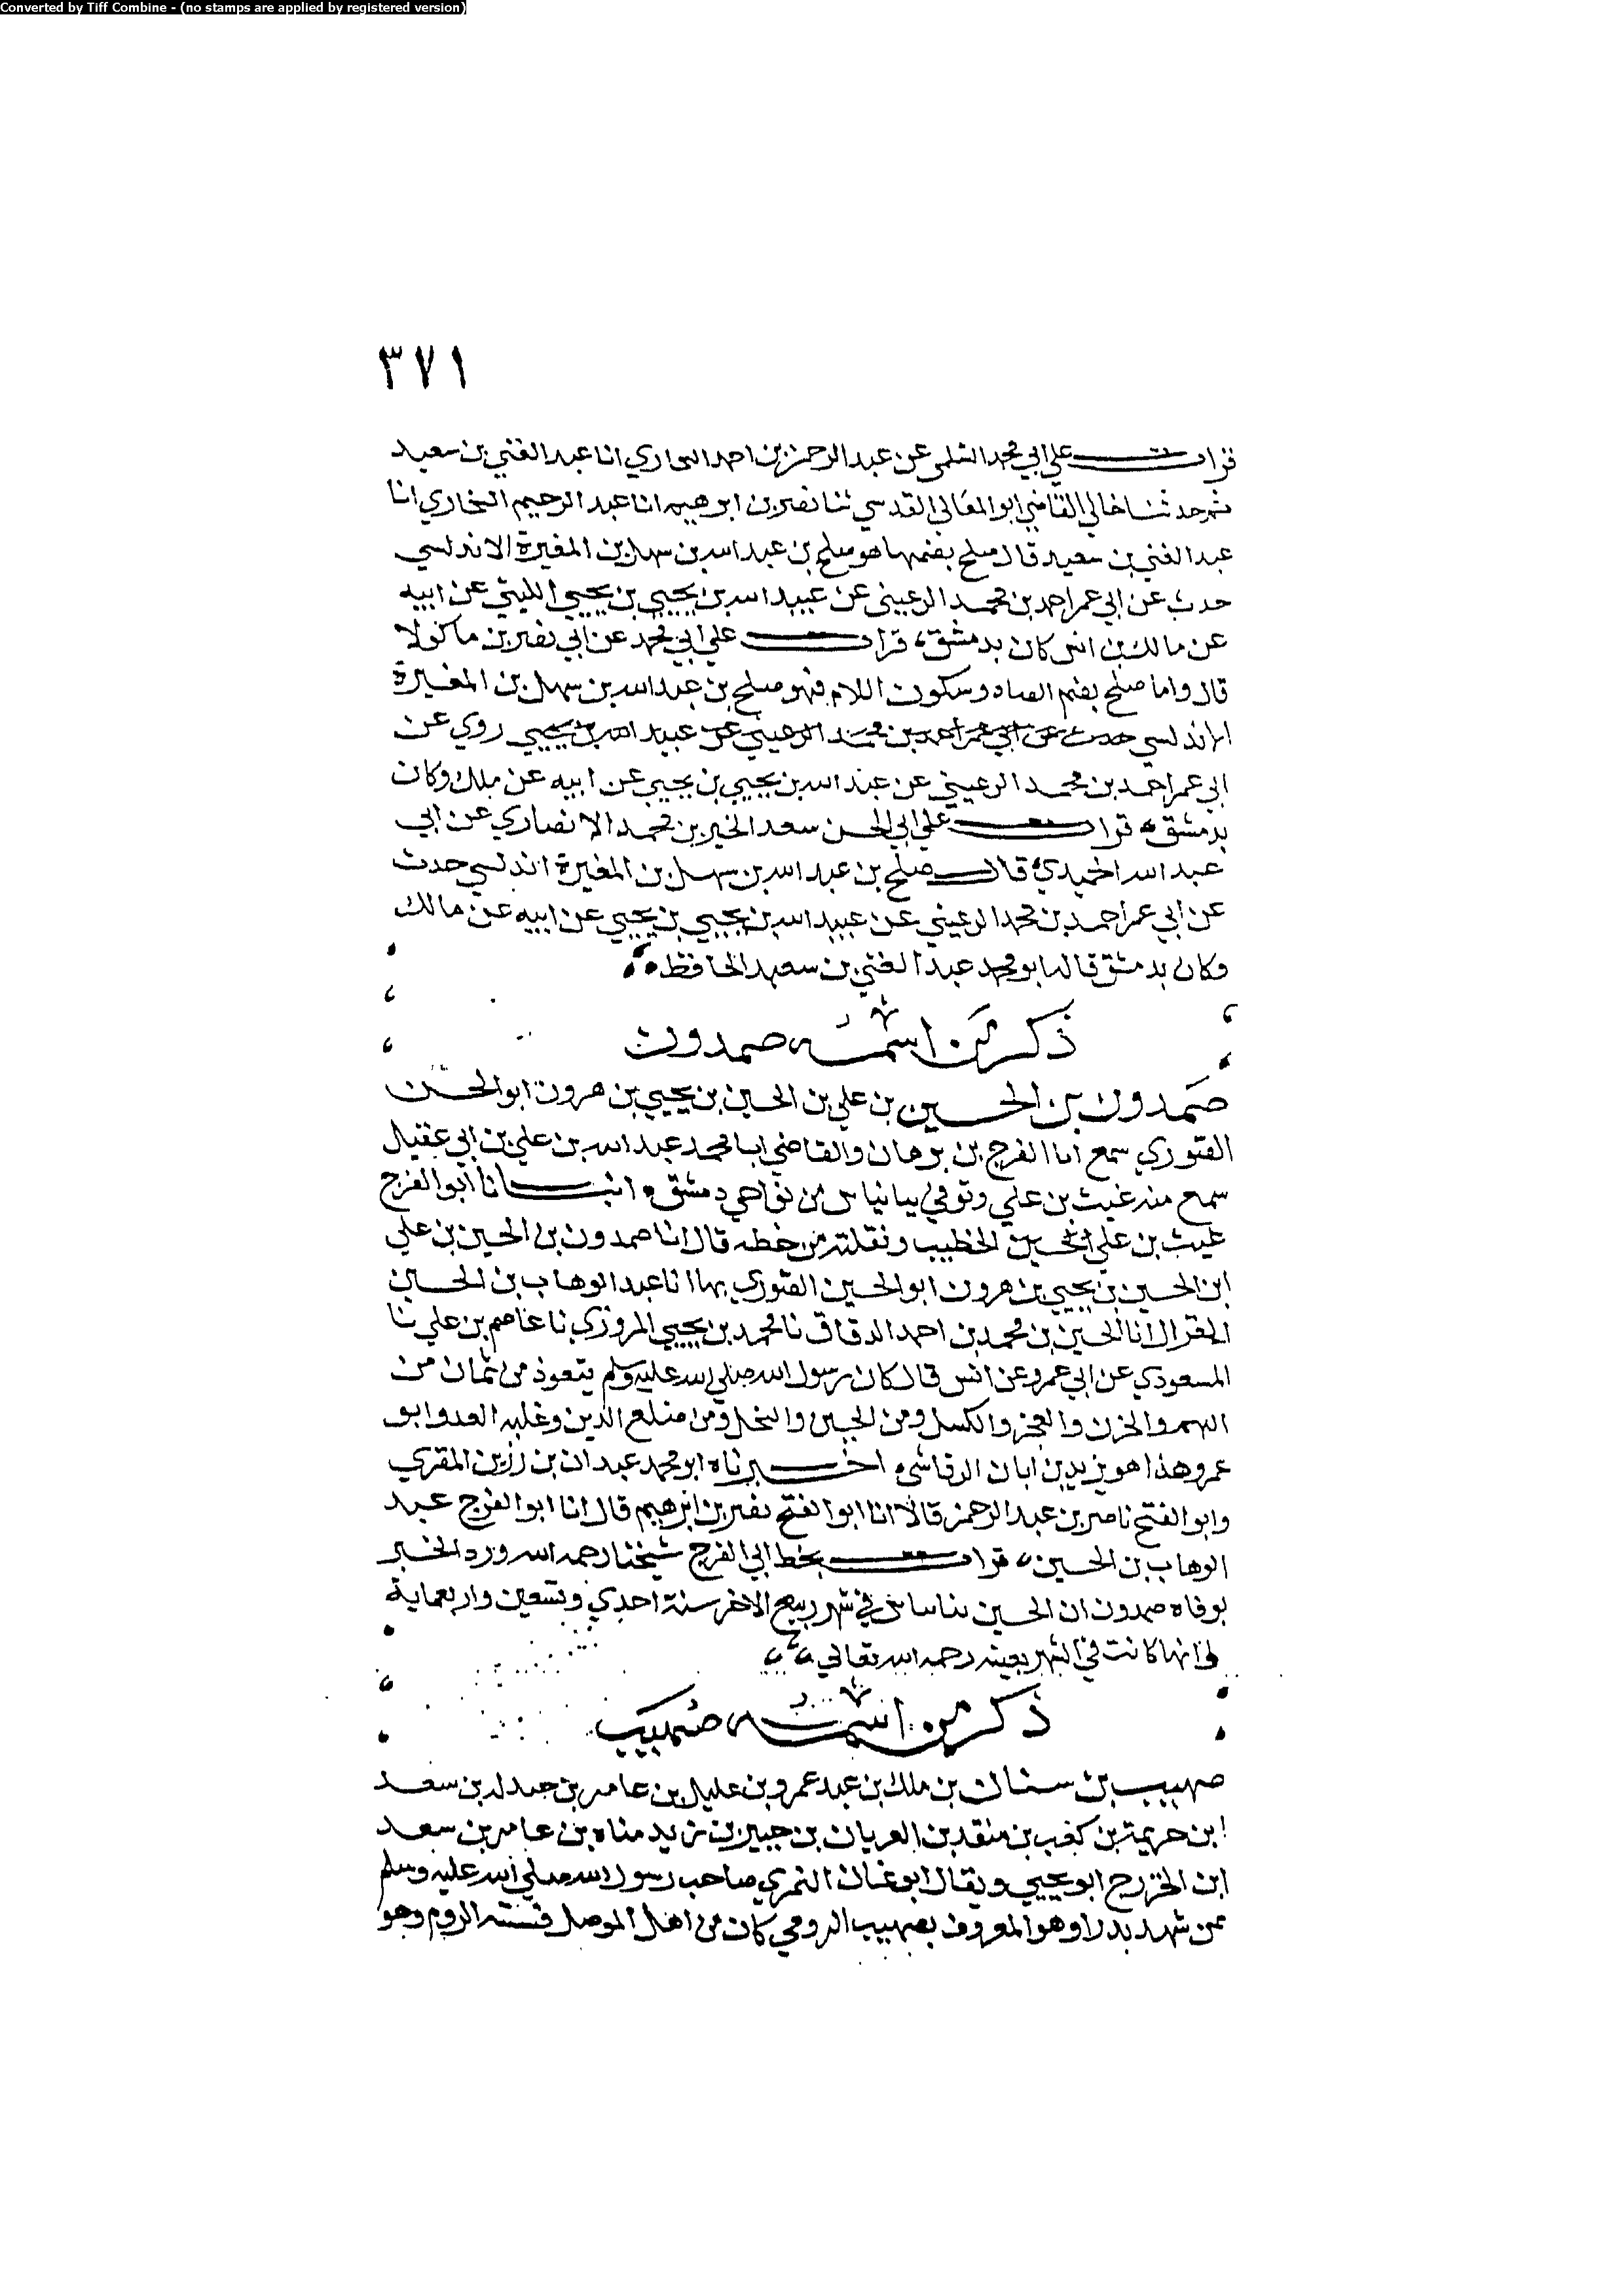 Converted by Tiff Combine - (no stamps are applied by registered version)
٣٧١
قرات علي ابي محمد السلمي عن عبد الرحمن بن احمد البخاري انا عبد الغني بن سعيد
ثم حدثنا خالي القاضي ابو المعالي القدسي ثنا نصر بن ابرهيم انا عبد الرحيم البخاري انا
عبد الغني بن سعيد قال صلح بضمها هو صلح بن عبد الله بن سهل بن المغيرة الاندلسي
حدث عن ابي عمر احمد بن محمد الرعيني عن عبيد الله بن يحيي بن يحيي الليثي عن ابيه
عن مالك بن انس كان بدمشق، قرات علي ابي محمد عن ابي نصر بن ماكولا
قال واما صلح بضم الصاد وسكون اللام فهو صلح بن عبد الله بن سهل بن المغيرة
الاندلسي حدث عن ابي عمر احمد بن محمد الرعيني عن عبيد الله بن يحيي روي عن
ابي عمر احمد بن محمد الرعيني عن عبد الله بن يحيي بن يحيي عن ابيه عن ملك وكان
بدمشق قرات علي ابي الحسن سعد الخير بن محمد الانصاري عن ابي
عبد الله الحميدي قال صلح بن عبد الله بن سهل بن المغيرة اندلسي حدث
عن ابي عمر احمد بن محمد الرعيني عن عبيد الله بن يحيي بن يحيي عن ابيه عن مالك
وكان بدمشق قاله ابو محمد عبد الغني بن سعيد الحافظ
ذكر من اسمه صمدون
صمدون بن الحسين بن علي بن الحسين بن يحيي بن هرون ابو الحسن
الصوري سمع ابا الفرج بن برهان والقاضي ابا محمد عبد الله بن علي بن ابي عقيل
سمع منه غيث بن علي وتوفي ببانياس من نواحي دمشق، انبانا ابو الفرج
غيث بن علي الخطيب ونقلته من خطه قال انا صمدون بن الحسين بن علي
ابن الحسين بن يحيي بن هرون ابو الحسين الصوري بها انا عبد الوهاب بن الحسين
الغزال انا الحسين بن محمد بن احمد الدقاق نا محمد بن يحيي المروزي نا عاصم بن علي نا
المسعودي عن ابي عمرو عن انس قال كان رسول الله صلي الله عليه وسلم يتعوذ من ثمان من
الهم والحزن والعجز والكسل ومن الجبن والبخل ومن ضلع الدين وغلبه العدو ابو
عمرو هذا هو يزيد بن ابان الرقاشي، اخبرناه ابو محمد عبدان بن رزين المقري
وابو الفتح ناصر بن عبد الرحمن قالا انا ابو الفتح نصر بن ابرهيم قال انا ابو الفرج عبد
الوهاب بن الحسين، قرات بخط ابي الفرج شيخنا رحمه الله ورد الخبر
بوفاه صمدون ان الحسين ببانياس في شهر ربيع الاخر سنة احدي وتسعين واربعماية
وانها كانت في الشهر بعينه رحمه الله تعالي
ذكر من اسمه صهيب
صهيب بن سنان بن ملك بن عبد عمرو بن عقيل بن عامر بن جندلة بن سعد
ابن خزيمة بن كعب بن منقذ بن العريان بن جبير بن زيد مناه بن عامر بن سعد
ابن الخزرج ابو يحيي ويقال ابو غسان النمري صاحب رسول الله صلي الله عليه وسلم
ممن شهد بدرا وهو المعروف بصهيب الرومي كان من اهل الموصل فسبته الروم وهو